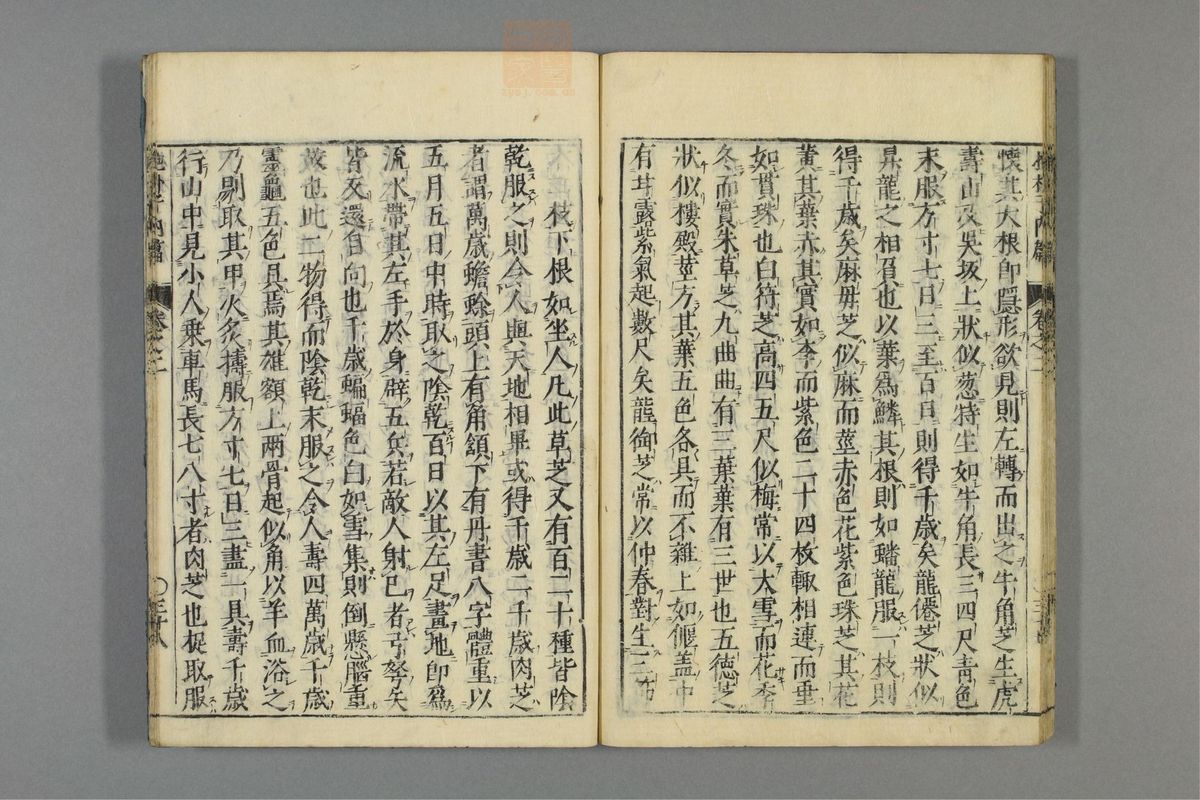 懷其大根卽隱形欲見則左轉而出之牛角芝生虎
壽山及吳坂上狀似葱特生如牛角長三四尺靑色
末服方寸七日三至百日則得千歲矣龍僊芝狀似
昇龍之相負也以葉爲鱗其根則如蟠龍服一枚則
得千歲矣麻母芝似麻而莖赤色花紫色珠芝其花
黃其葉赤其實如李而紫色二十四枚輙相連而垂
如貫珠也白符芝高四五尺似梅常以大雪而花季
冬而實朱草芝九曲曲有三葉葉有三世也五德芝
狀似樓殿莖方其葉五色各具而不雜上如偃盖中
有甘露紫氣起數尺矣龍御芝常以仲春對生三節
十二枝下根如坐人凢此草芝又有百二十種皆陰
乾服之則令人與天地相畢或得千歲二千歲肉芝
者謂萬歲蟾蜍頭上有角頷下有丹書八字體重以
五月五日中時取之陰乾百日以其左足畫地卽爲
流水帶其左手於身辟五兵若敵人射己者弓弩矢
皆反還自向也千歲蝙蝠色白如雪集則倒懸腦重
故也此二物得而陰乾末服之令人壽四萬歲千歲
靈龜五色具焉其雄額上兩骨起似角以羊血浴之
乃剔取其甲火炙搗服方寸七日三盡一具壽千歲
行山中見小人乗車馬長七八寸者肉芝也捉取服
內篇
卷之二